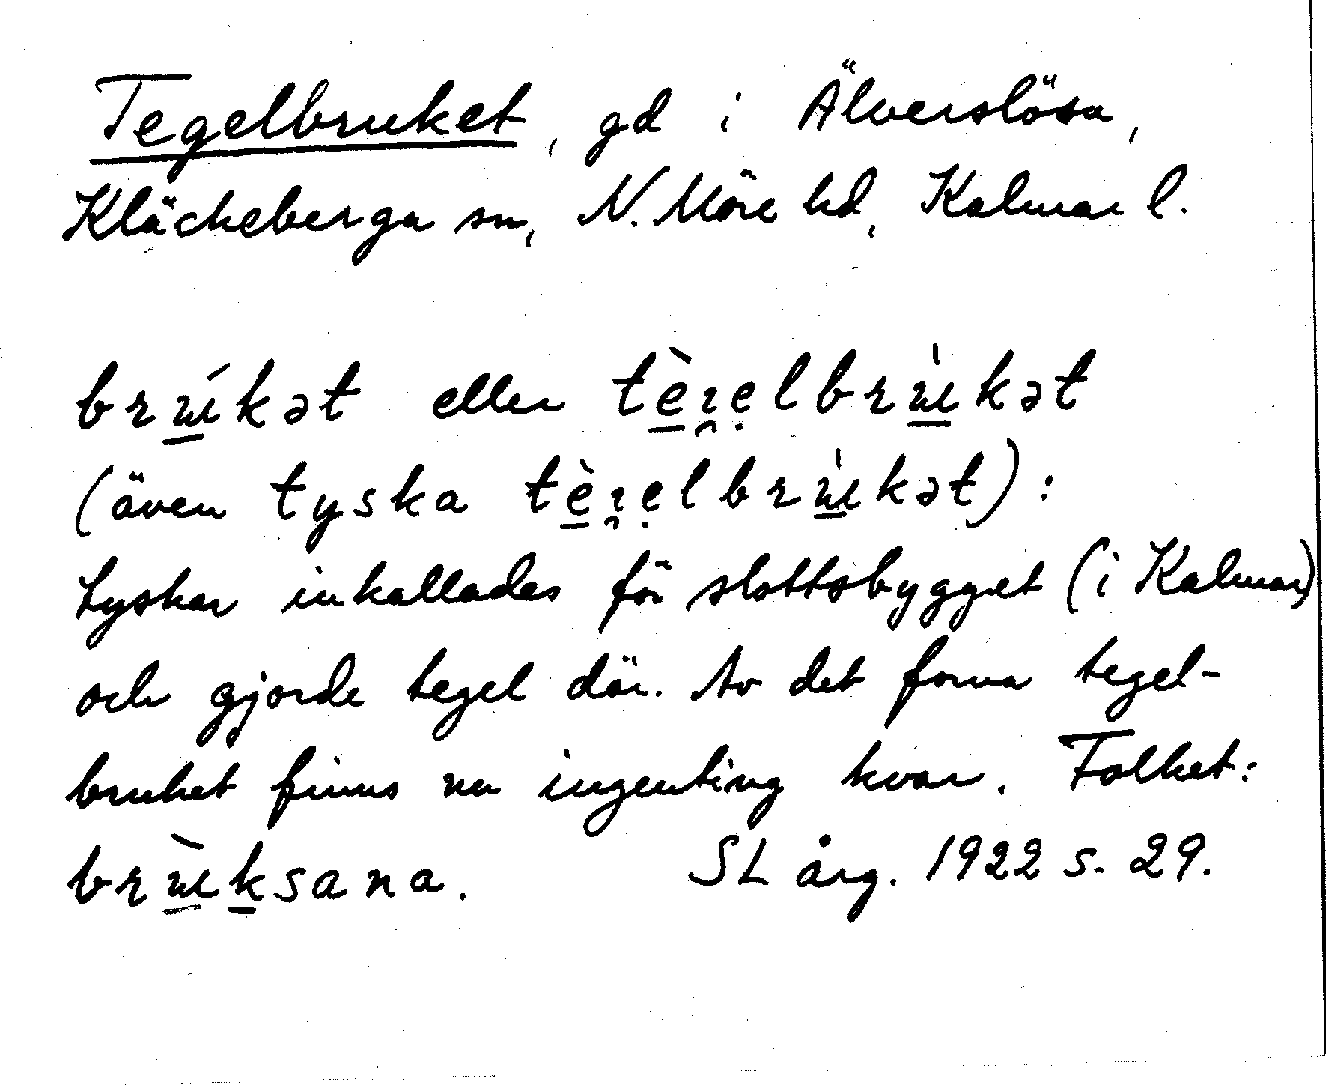 Tegelbruket, gd i Älverslösa,
Kläckeberga sn, N. Möre hd, Kalmar l.
brɯ́kət eller tèɀ̯ẹlbrɯ̀kət
(även tyska tèɀ̯ẹlbrɯ̀kət):
tyskar inkallades för slottsbygget (i Kalmar)
och gjorde tegel där. Av det forna tegel-
bruket finns nu ingenting kvar. Folket:
brɯ̀ksana. SL årg. 1922 s. 29.